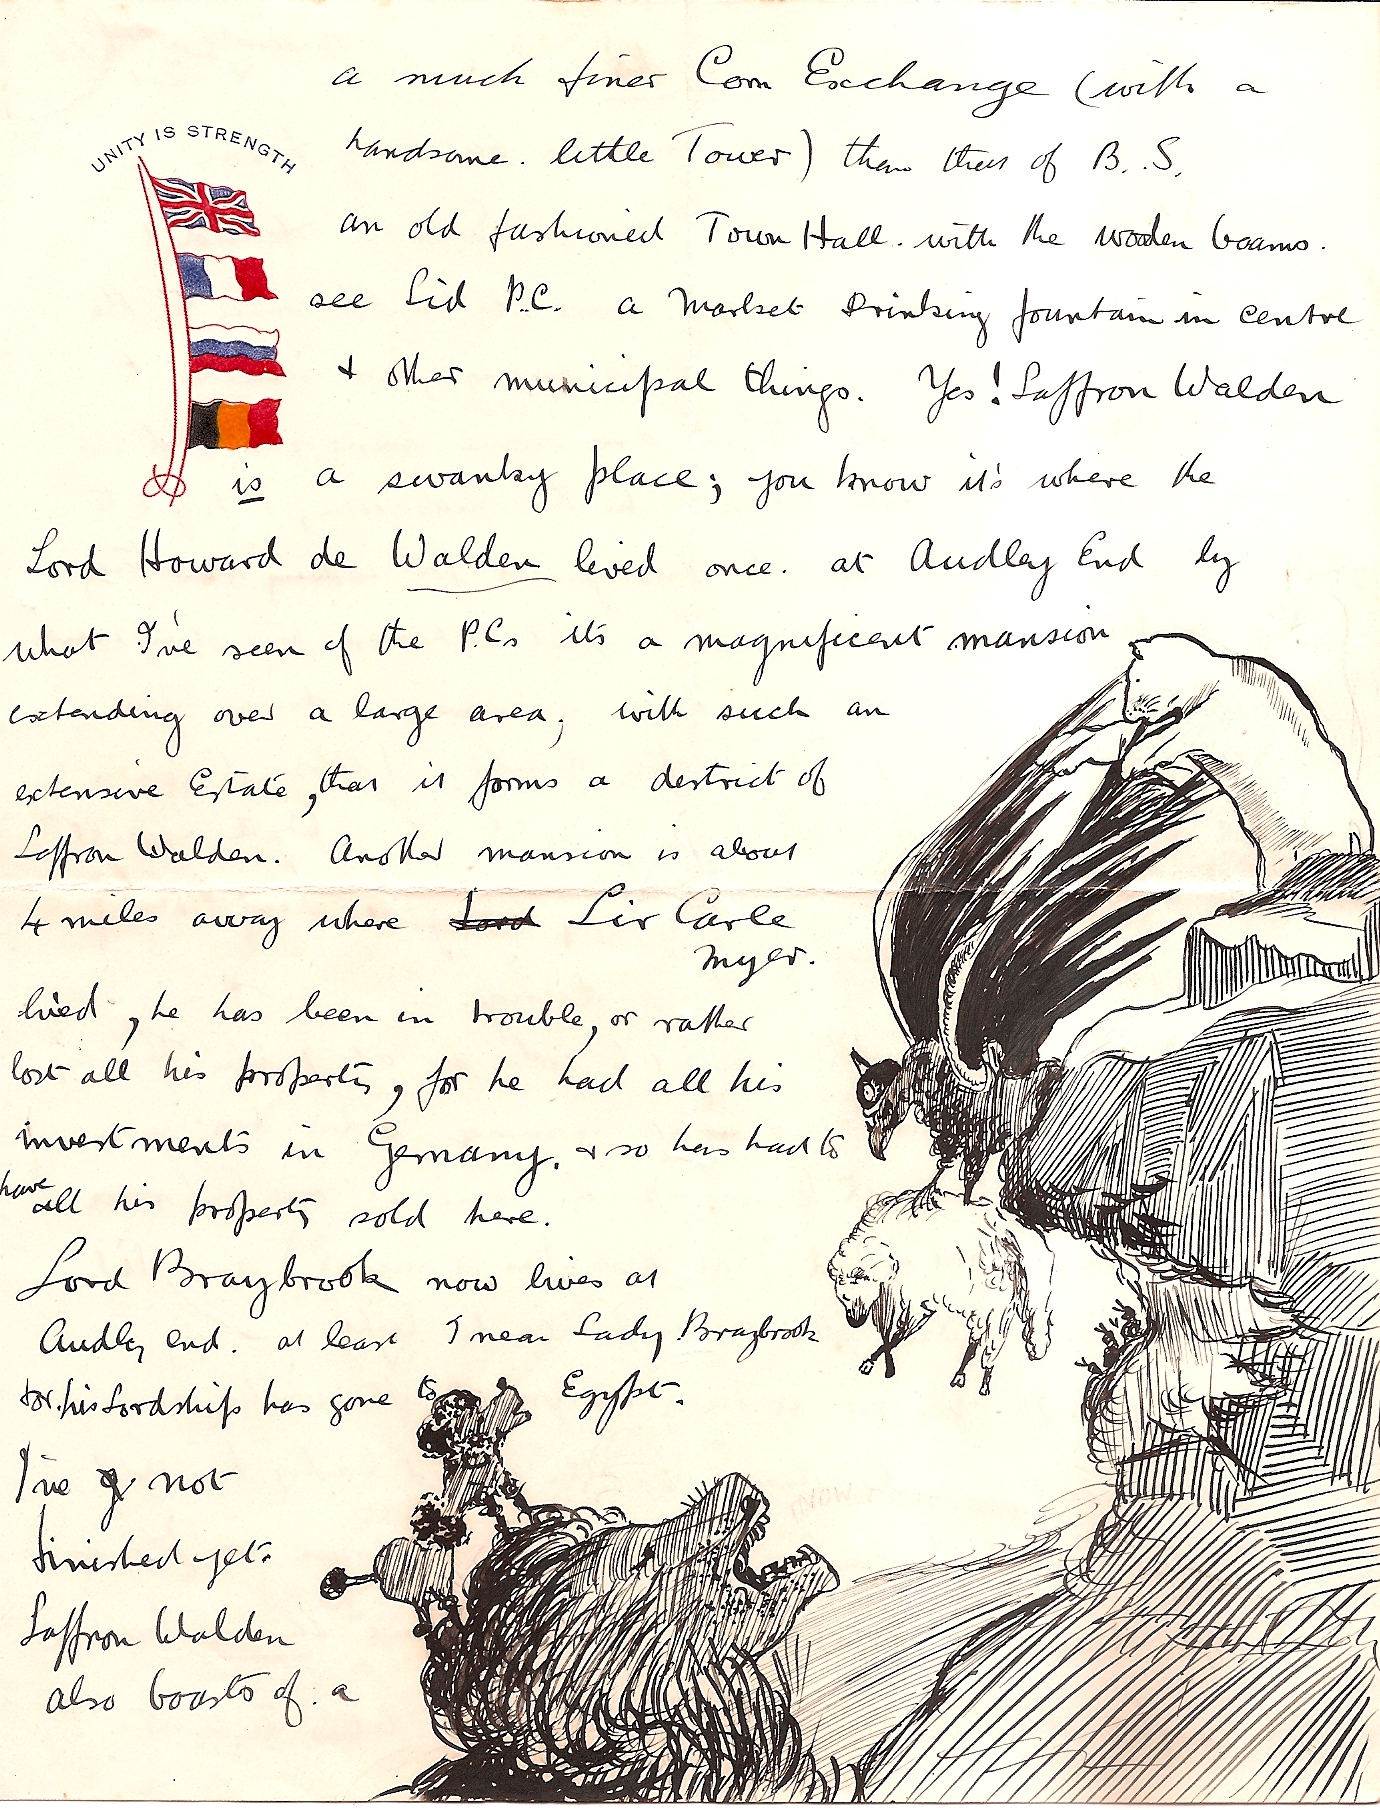 UNITY IS STRENGTH
a much finer Corn Exchange (with a
handsome. little Tower) than that of B.. S.
an old fashioned Town Hall. with the wooden beams.
see Lid P.C. a Market Drinking fountain in centre
& other municipal things. Yes! Saffron Walden
is a swanky place; you know it's where the
Lord Howard de Walden lived once. at Audley End by
what I've seen of the P.Cs its a magnificent mansion
extending over a large area, with such an
extensive Estate, that it forms a district of
Saffron Walden. Another mansion is about
4 miles away where Lord Sir Carle
Myer.
lived, he has been in trouble, or rather
lost all his property, for he had all his
investments in Germany, & so has had to
have all his property sold here.
Lord Braybrook now lives at
Audley end. at least I mean Lady Braybrook
for his Lordship has gone to Egypt.
I've not
finished yet.
Saffron Walden
also boasts of. a